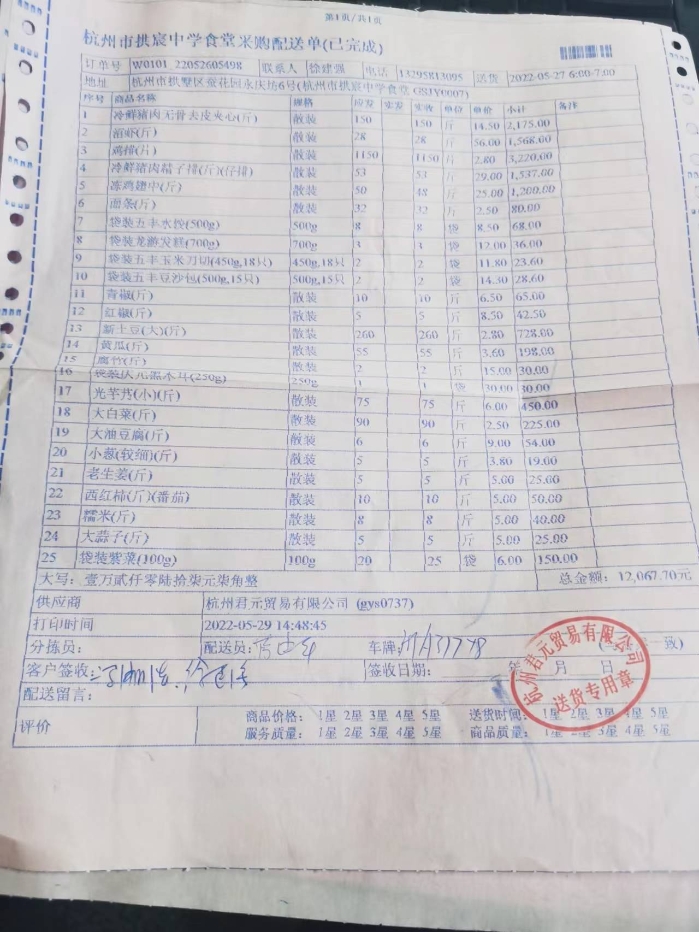 第1页/共1页
杭州市拱宸中学食堂采购配送单(已完成)
订单号 W0101_22052605498 联系人 徐建强 电话 13295813095 送货 2022-05-27 6:00-7:00
地址 杭州市拱墅区 花园永庆坊6号(杭州市拱宸中学食堂 GSJY0007)
序号 商品名称 规格 应发 实发 实收 单位 单价 小计 备注
1 冷鲜猪肉无骨去皮夹心(斤) 散装 150 150 斤 14.50 2,175.00
2 沼虾(斤) 散装 28 28 斤 56.00 1,568.00
3 鸡排(片) 散装 1150 1150 片 2.80 3,220.00
4 冷鲜猪肉精子排(斤)(仔排) 散装 53 53 斤 29.00 1,537.00
5 冻鸡翅中(斤) 散装 50 48 斤 25.00 1,200.00
6 面条(斤) 散装 32 32 斤 2.50 80.00
7 袋装五丰水饺(500g) 500g 8 8 袋 8.50 68.00
8 袋装龙游发糕(700g) 700g 3 3 袋 12.00 36.00
9 袋装五丰玉米刀切(450g,18只) 450g,18只 2 2 袋 11.80 23.60
10 袋装五丰豆沙包(500g,15只) 500g,15只 2 2 袋 14.30 28.60
11 青椒(斤) 散装 10 10 斤 6.50 65.00
12 红椒(斤) 散装 5 5 斤 8.50 42.50
13 新土豆(大)(斤) 散装 260 260 斤 2.80 728.00
14 黄瓜(斤) 散装 55 55 斤 3.60 198.00
15 腐竹(斤) 散装 2 2 斤 15.00 30.00
16 袋装庆元黑木耳(250g) 250g 1 1 袋 30.00 30.00
17 光芋艿(小)(斤) 散装 75 75 斤 6.00 450.00
18 大白菜(斤) 散装 90 90 斤 2.50 225.00
19 大油豆腐(斤) 散装 6 6 斤 9.00 54.00
20 小葱(较细)(斤) 散装 5 5 斤 3.80 19.00
21 老生姜(斤) 散装 5 5 斤 5.00 25.00
22 西红柿(斤)(番茄) 散装 10 10 斤 5.00 50.00
23 糯米(斤) 散装 8 8 斤 5.00 40.00
24 大蒜子(斤) 散装 5 5 斤 5.00 25.00
25 袋装紫菜(100g) 100g 20 25 袋 6.00 150.00
大写: 壹万贰仟零陆拾柒元柒角整 总金额: 12,067.70元
供应商 杭州君元贸易有限公司 (gys0737)
打印时间 2022-05-29 14:48:45
分拣员: 配送员: 车牌: 致)
客户签收: 签收日期: 年 月 日
杭州君元贸易有限公司
送货专用章
配送留言:
评价 商品价格: 1星 2星 3星 4星 5星 送货时间: 1星 2星 3星 4星 5星
服务质量: 1星 2星 3星 4星 5星 商品质量: 1星 2星 3星 4星 5星